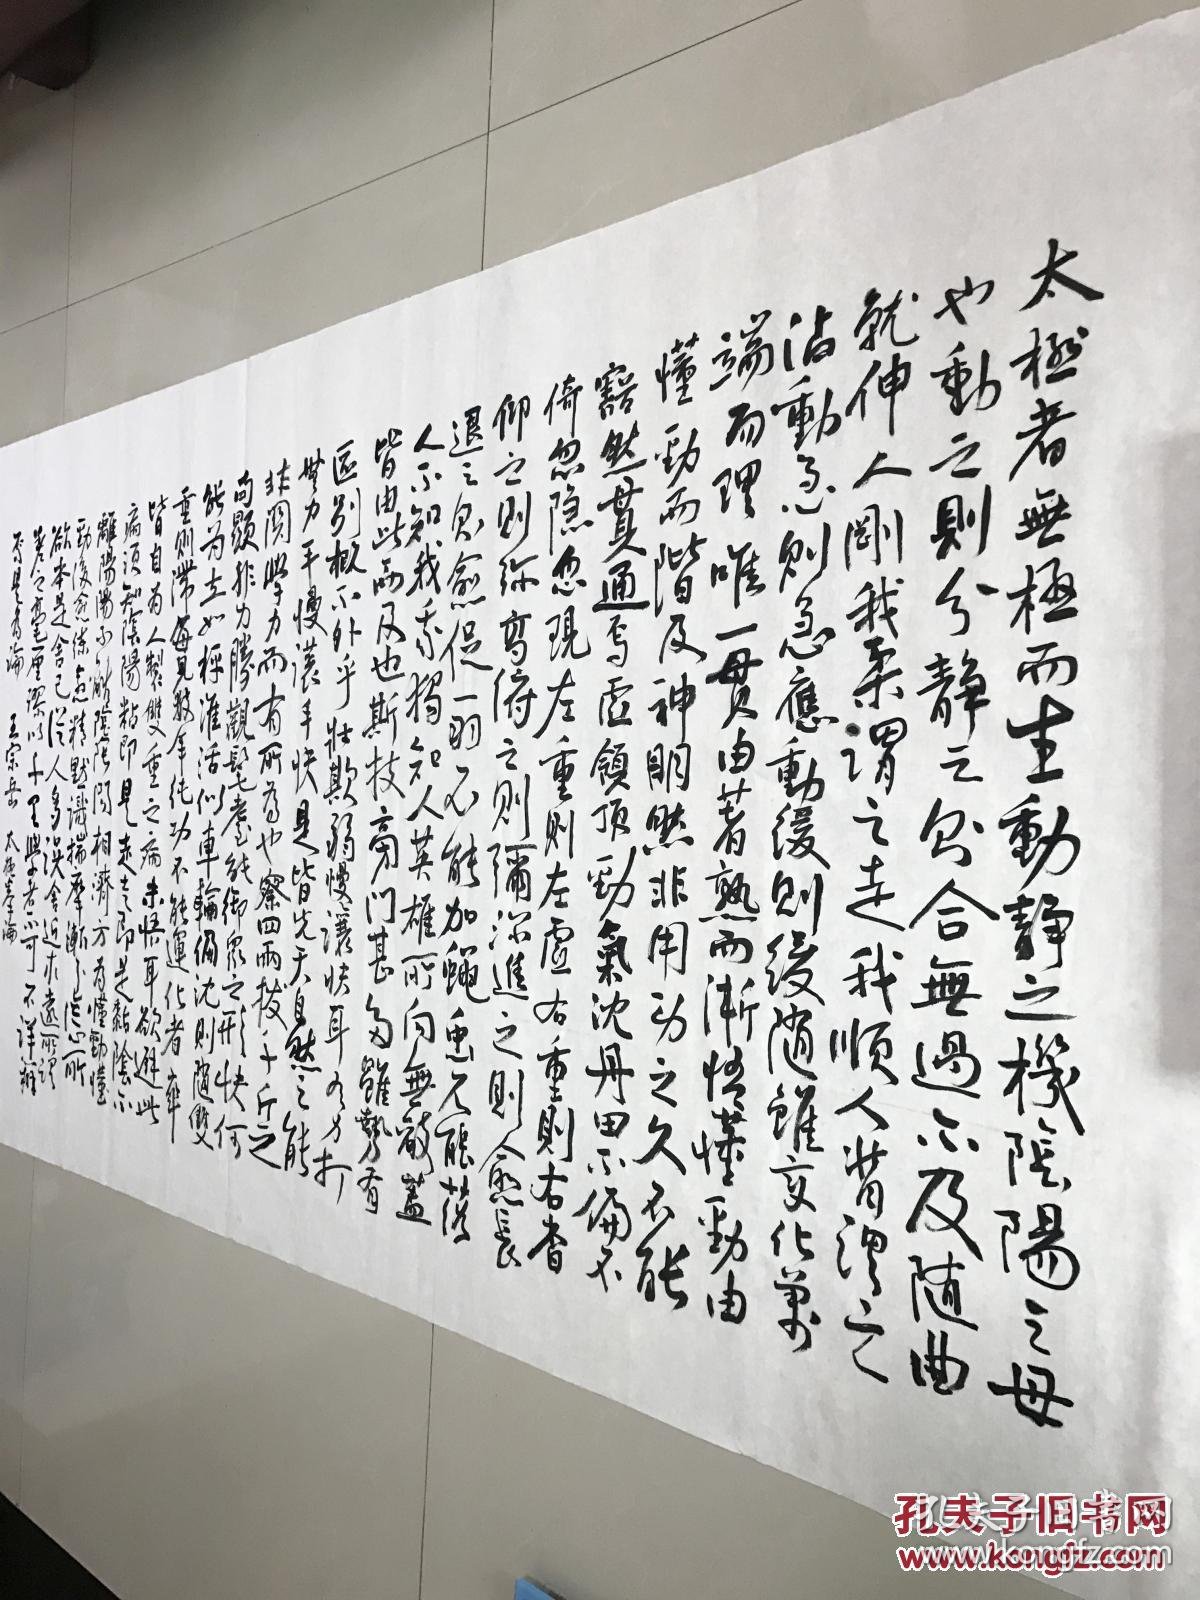 太極者無極而生動靜之機陰陽之母
也動之則分靜之則合無過不及随曲
就伸人剛我柔謂之走我順人背謂之
沾動急則急應動緩則緩随雖变化萬
端而理唯一贯由著熟而漸悟懂勁由
懂勁而階及神明然非用功之久不能
豁然貫通焉虚領顶勁氣沈丹田不偏不
倚忽隐忽现左重则左虚右重則右杳
仰之則弥高俯之则彌深進之則愈長
退之则愈促一羽不能加蠅虫不能落
人不知我我獨知人英雄所向無敵蓋
皆由此而及也斯技旁门甚多雖势有
區别概不外乎壮欺弱慢讓快耳有力打
無力手慢讓手快是皆先天自然之能
非関學力而有所为也察四兩拔千斤之
句顯非力勝觀耄耋能御眾之形快何
能为立如枰准活似車輪偏沈則随雙
重則滞每見数年纯功不能運化者率
皆自为人製雙重之病未悟耳欲避此
病须知陰陽粘即是走走即是黏陰不
離陽陽不離陰陰阳相濟方为懂勁懂
勁後愈练愈精默識揣摩漸至從心所
欲本是舍己從人多误舍近求遠所謂
差之毫厘谬以千里學者不可不详辨
焉是为論 王宗岳 太極拳論
孔夫子旧书网
www.kongfz.com